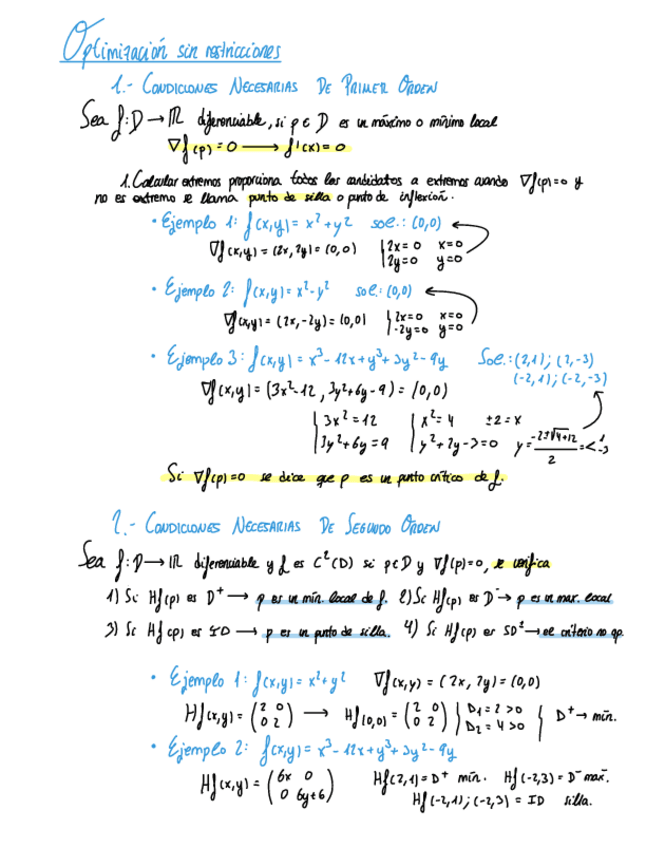 Optimización sin restricciones
1.- CONDICIONES NECESARIAS DE PRIMER ORDEN
Sea f: D → ℝ diferenciable, si p ∈ D es un máximo o mínimo local
∇f(p) = 0 → f'(x) = 0
1. Calcular extremos proporciona todos los candidatos a extremos cuando ∇f(p)=0 y
no es extremo se llama punto de silla o punto de inflexión.
• Ejemplo 1: f(x,y) = x²+y² sol.: (0,0)
∇f(x,y) = (2x, 2y) = (0,0) 2x=0 x=0
2y=0 y=0
• Ejemplo 2: f(x,y) = x²-y² sol.: (0,0)
∇f(x,y) = (2x,-2y) = (0,0) 2x=0 x=0
-2y=0 y=0
• Ejemplo 3: f(x,y) = x³-12x+y³+3y²-9y Sol.: (2,1); (2,-3)
(-2,1); (-2,-3)
∇f(x,y) = (3x²-12, 3y²+6y-9) = (0,0)
3x²=12 x²=4 ±2=x
3y²+6y=9 y²+2y-3=0 y=(-2±√4+12)/2=< 1 -3
Si ∇f(p)=0 se dice que p es un punto crítico de f.
2.- CONDICIONES NECESARIAS DE SEGUNDO ORDEN
Sea f: D → ℝ diferenciable y f es C²(D) si p∈D y ∇f(p)=0, se verifica
1) Si Hf(p) es D⁺ → p es un mín. local de f. 2) Si Hf(p) es D⁻ → p es un max. local
3) Si Hf(p) es ID → p es un punto de silla. 4) Si Hf(p) es SD± → el criterio no op.
• Ejemplo 1: f(x,y) = x²+y² ∇f(x,y) = (2x, 2y) = (0,0)
Hf(x,y) = (2 0 0 2) → Hf(0,0) = (2 0 0 2) D₁=2>0 D₂=4>0 D⁺→ mín.
• Ejemplo 2: f(x,y) = x³-12x+y³+3y²-9y
Hf(x,y) = (6x 0 0 6y+6) Hf(2,1) = D⁺ mín. Hf(-2,3) = D⁻ max.
Hf(-2,1); (-2,3) = ID silla.